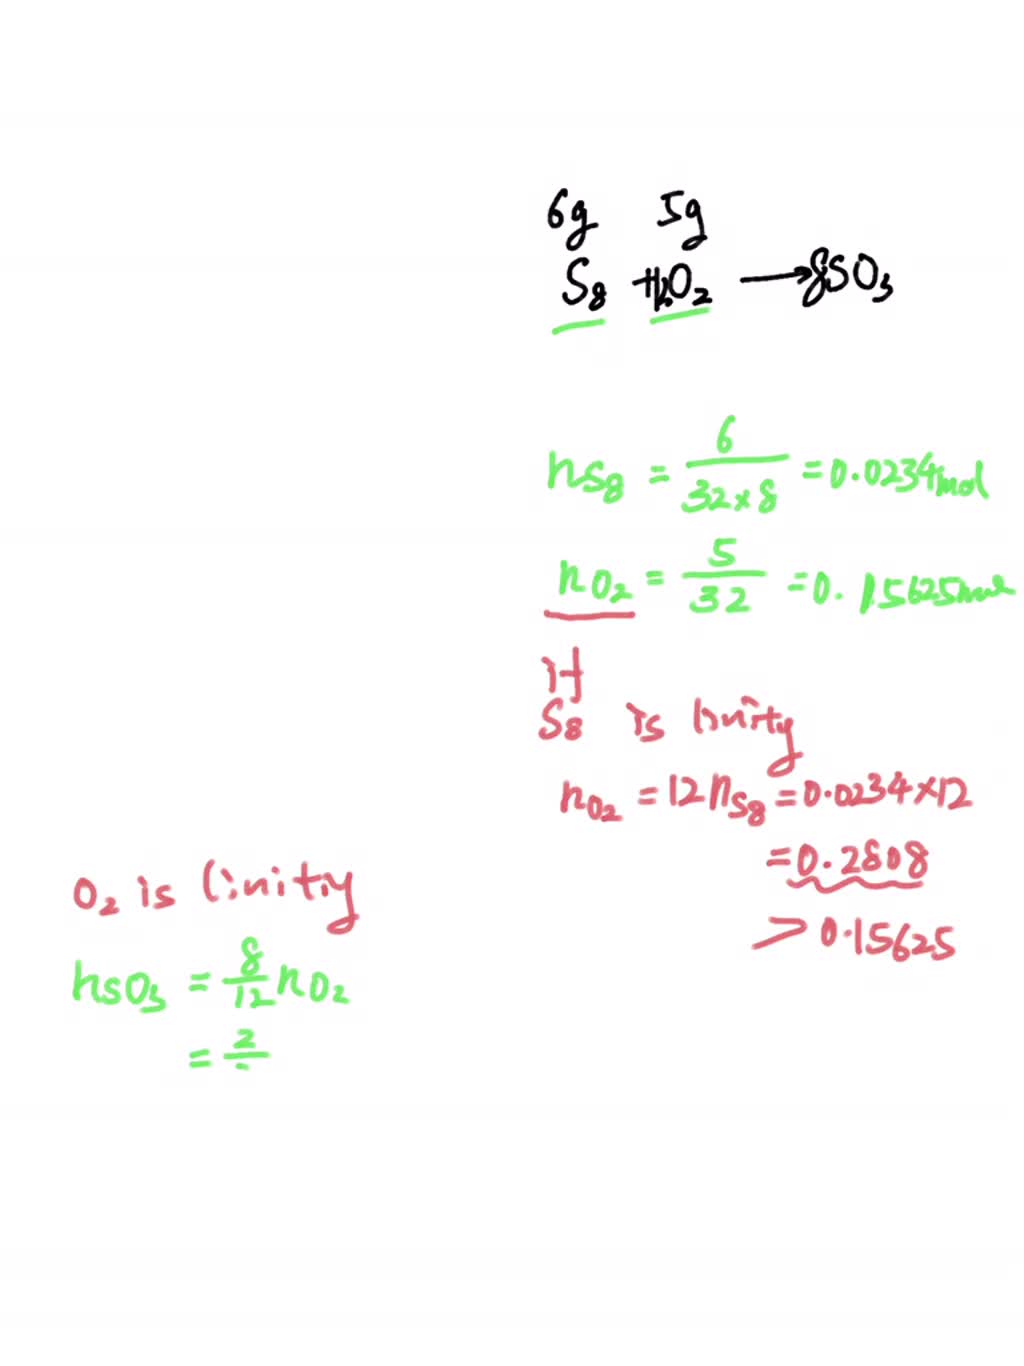 6g 5g
S₈ +12O₂ → 8SO₃
nS₈ = 6/(32×8) = 0.0234mol
nO₂ = 5/32 = 0.15625mol
if
S₈ is linity
nO₂ = 12nS₈ = 0.0234×12
= 0.2808
> 0.15625
O₂ is linitiy
nSO₃ = 8/12 nO₂
= 2/